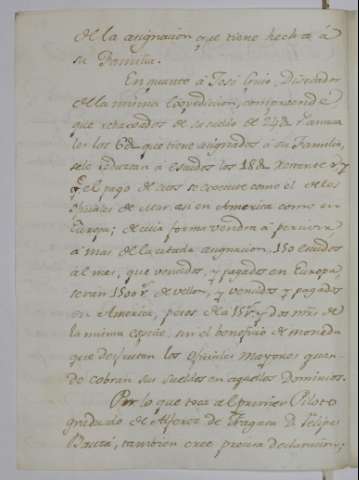 de la asignacion que tiene hecha á
su Familia.
En quanto á José Guio, Disecador
de la misma Expedicion, comprende
que rebaxados de su sueldo de 24@ r.s anua
les los 6@ que tiene asignados á su Familia,
se le reduzcan á escudos los 18@ restante
el pago de ellos se execute como el de los
Oficiales de Mar, asi en America como en
Europa; de cuia forma vendra á percivir
á mas de la citada asignacion, 150 escudos
al mes, que vencidos, y pagados en Europa,
seran 1500 r.s de vellon, y vencidos y pagados
en America, pesos de a 15 r.s y dos mrs. de
la misma especie, sin el beneficio de moneda
que disfrutan los Oficiales Mayores quan-
do cobran sus sueldos en aquellos Dominios.
Por lo que toca al primer Piloto
graduado de Alferez de Fragata D. Felipe
Bauzá, tambien cree precisa declaracion,